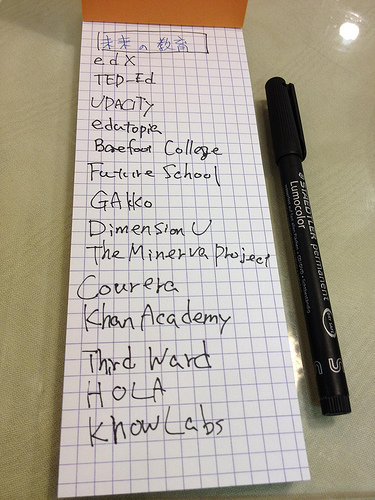 未来の教育
edX
TED-Ed
UDACITY
edutopia
Barefoot College
Future School
GAkko
Dimension U
The Minerva Project
Courera
Khan Academy
Third Ward
HOLA
KnowLabs
STAEDTLER permanent
Lumocolor